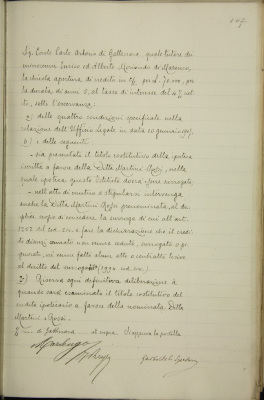 147
Sig. Conte Carlo Antonio di Gattinara, quale tutore dei
minorenni Enrico ed Alberto Moriondo di Morenzo,
la chiesta apertura di credito in c/c per L. 70.000, per
la durata di anni 5, al tasso di interesse del 4 % net-
to, sotto l'osservanza:
a) delle quattro condizioni specificate nella
relazione dell'Ufficio Legale in data 10 gennaio 1907;
b) e delle seguenti:
- sia presentato il titolo costitutivo della ipoteca
iscritta a favore della Ditta Martini & Rossi, nella
quale ipoteca questo Istituto dovrà esser surrogato;
- nell'atto di mutuo a stipularsi intervenga
anche la Ditta Martini & Rossi prenominata, al du-
plice scopo di consentire la surroga di cui all'art.
1252 del cod. civ. e fare la dichiarazione che il credi-
to dianzi cennato non venne ceduto, surrogato o pe-
gnorato, nè venne fatto alcun atto o contratto lesivo
al diritto del surrogato (1994 cod. civ.).
2) Riserva ogni definitiva deliberazione a
quando sarà esaminato il titolo costitutivo del
credito ipotecario a favore della nominata Ditta
Martini e Rossi.